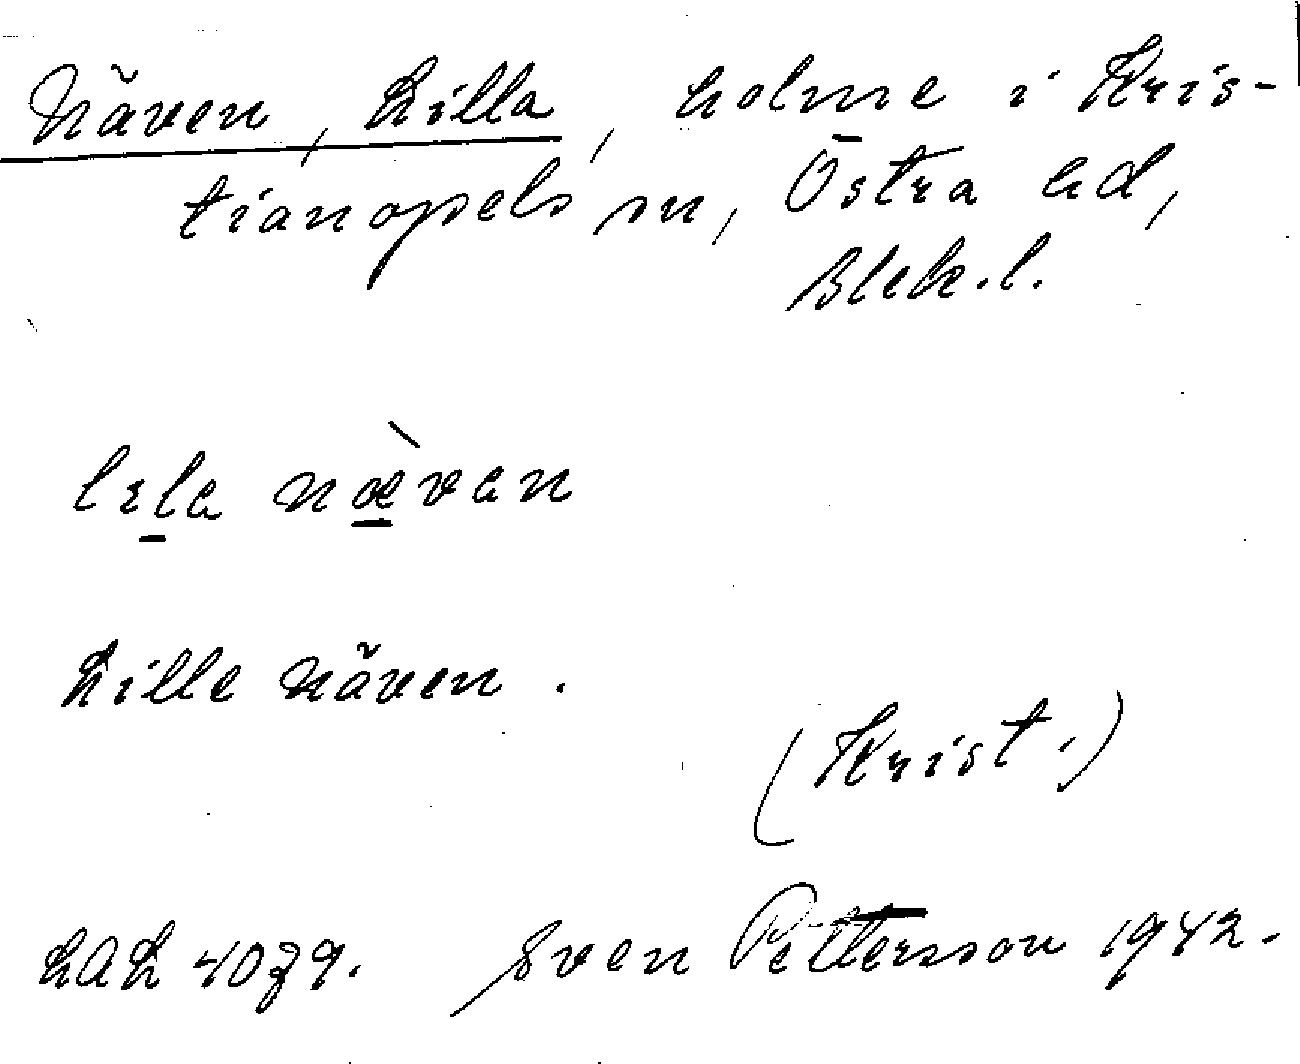 Näven, Lilla, holme i Kris-
tianopels sn, Östra hd,
Blek.l.
lɪla nævan
Lille Näven.
(Krist.)
LAL 4079. Sven Pettersson 1942.